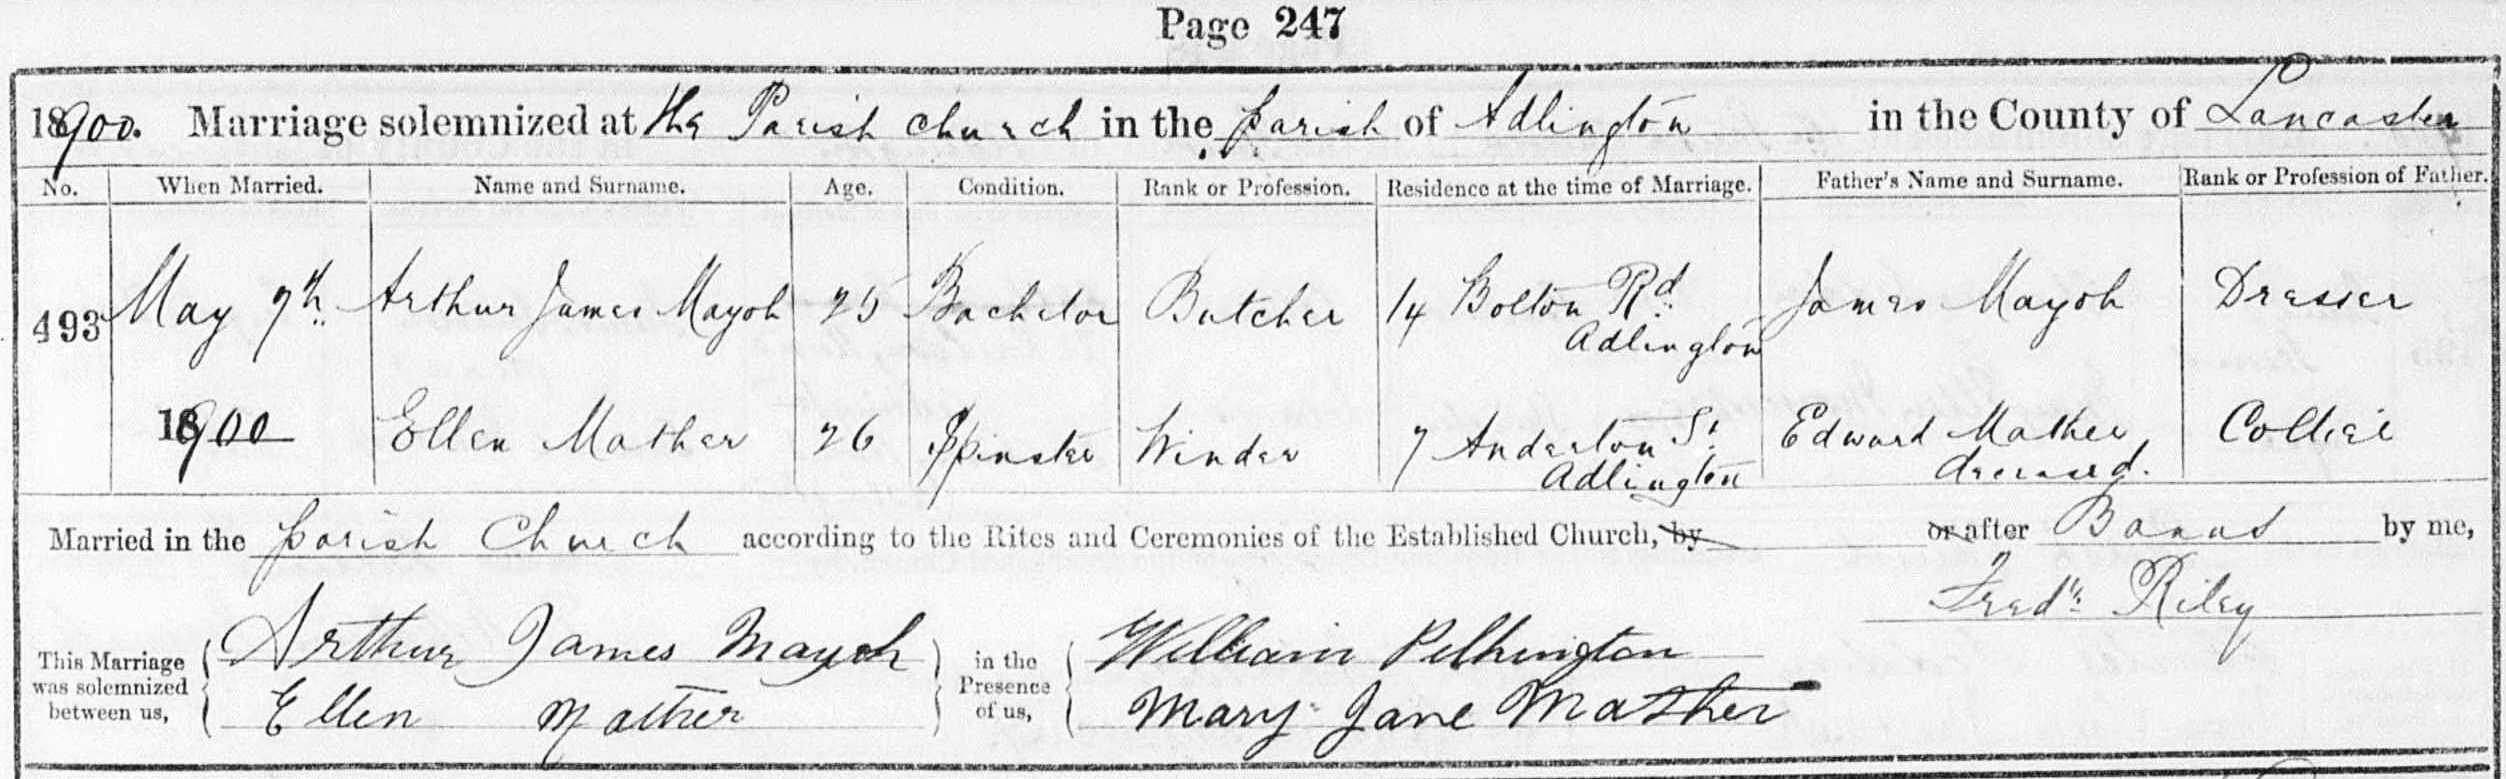 Page 247
1900. Marriage solemnized at the Parish Church in the Parish of Adlington in the County of Lancaster
No. When Married. Name and Surname. Age. Condition. Rank or Profession. Residence at the time of Marriage. Father's Name and Surname. Rank or Profession of Father.
493 May 9th Arthur James Mayoh 25 Bachelor Butcher 14 Bolton Rd. James Mayoh Dresser
Adlington
1900 Ellen Mather 26 Spinster Winder 7 Anderton St Edward Mather, Collier
Adlington deceased.
Married in the Parish Church according to the Rites and Ceremonies of the Established Church, by or after Banns by me,
Fredk. Riley
This Marriage was solemnized between us, Arthur James Mayoh Ellen Mather in the Presence of us, William Pilkington Mary Jane Mather